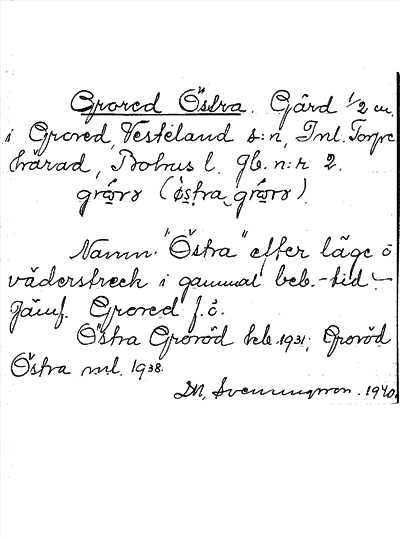 Grored Östra. Gård 1/2 m.
i Grored, Vesterland s:n, Inl. Torpe
härad, Bohus l. Jb. n:r 2.
Namn "Östra" efter läge o
väderstreck i gammal beb.-tid.-
Jämf. Grored f. ö.
Östra Groröd hcb. 1931; Groröd
Östra ml. 1938.
Svenningsson. 1940.